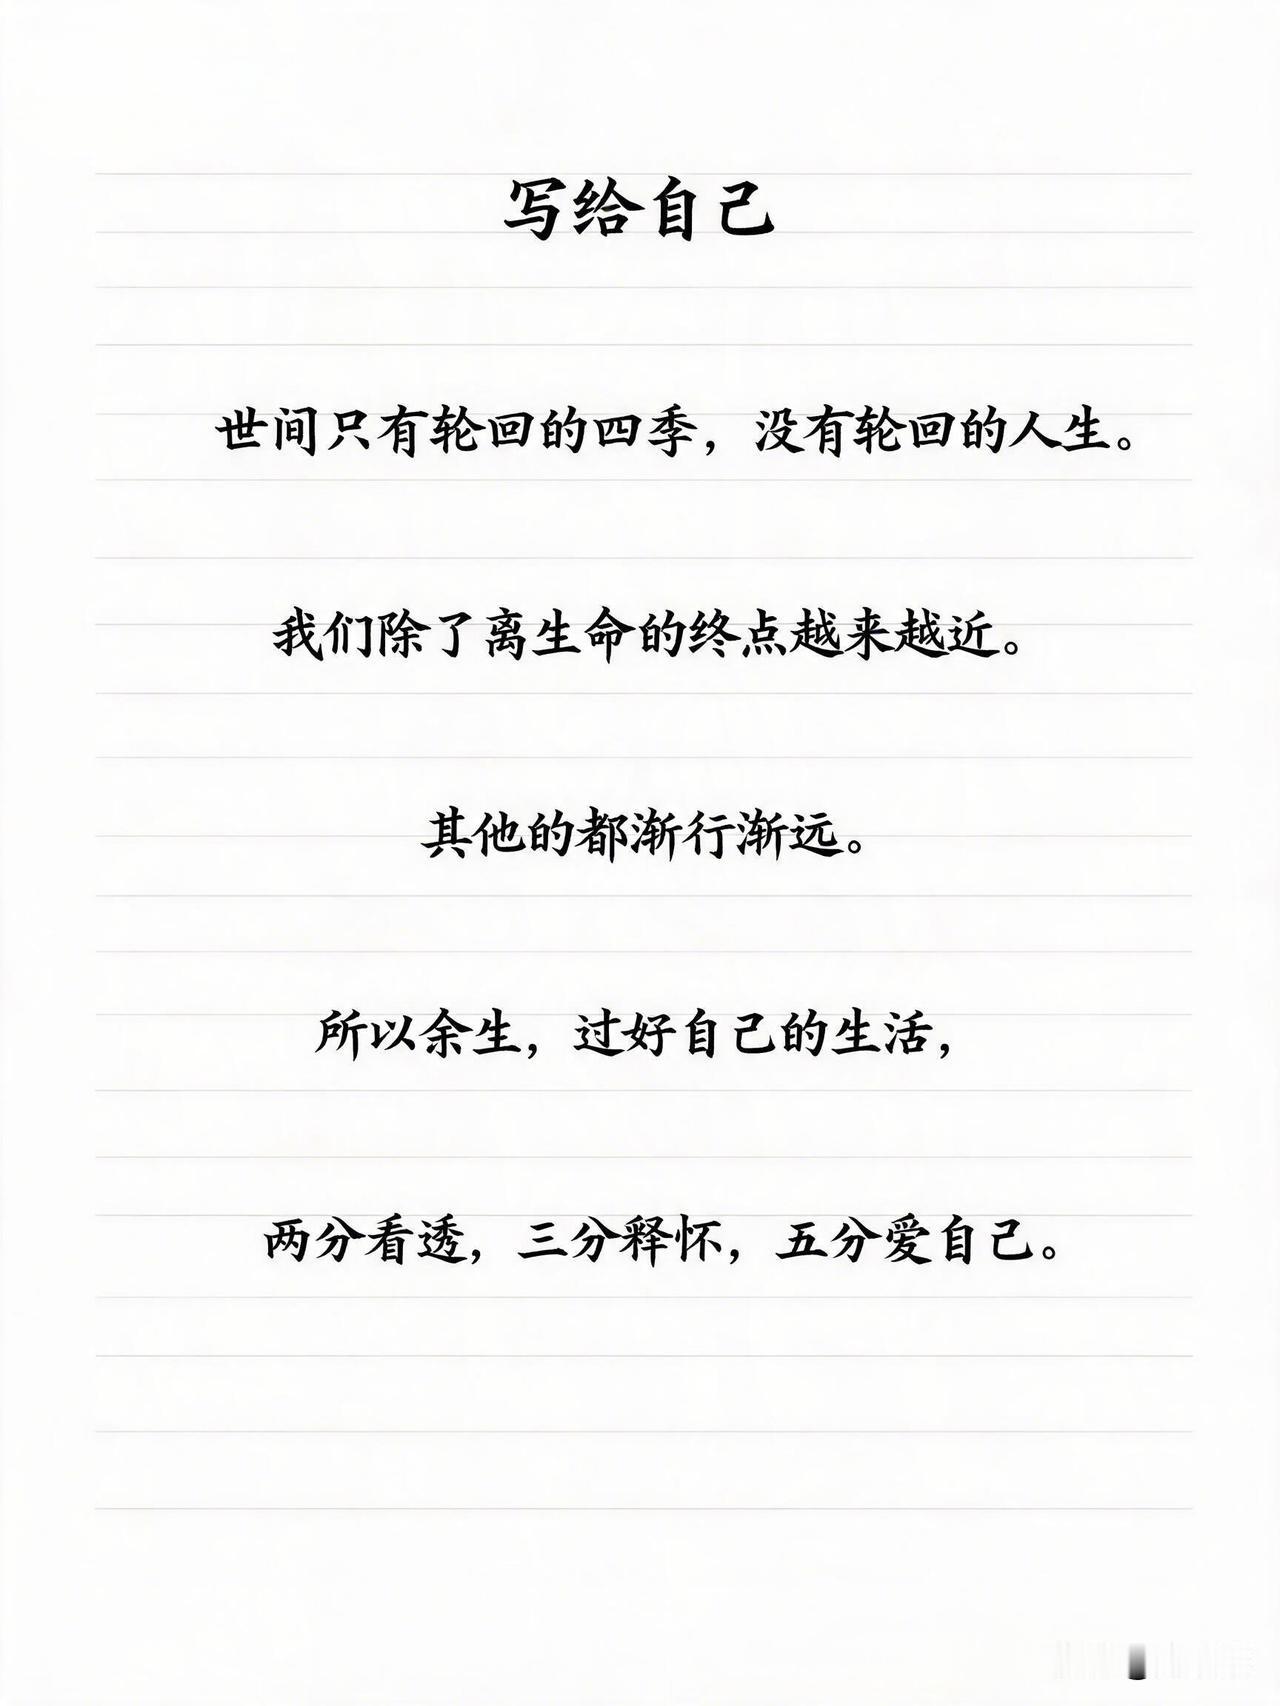 写给自己
世间只有轮回的四季，没有轮回的人生。
我们除了离生命的终点越来越近。
其他的都渐行渐远。
所以余生，过好自己的生活，
两分看透，三分释怀，五分爱自己。